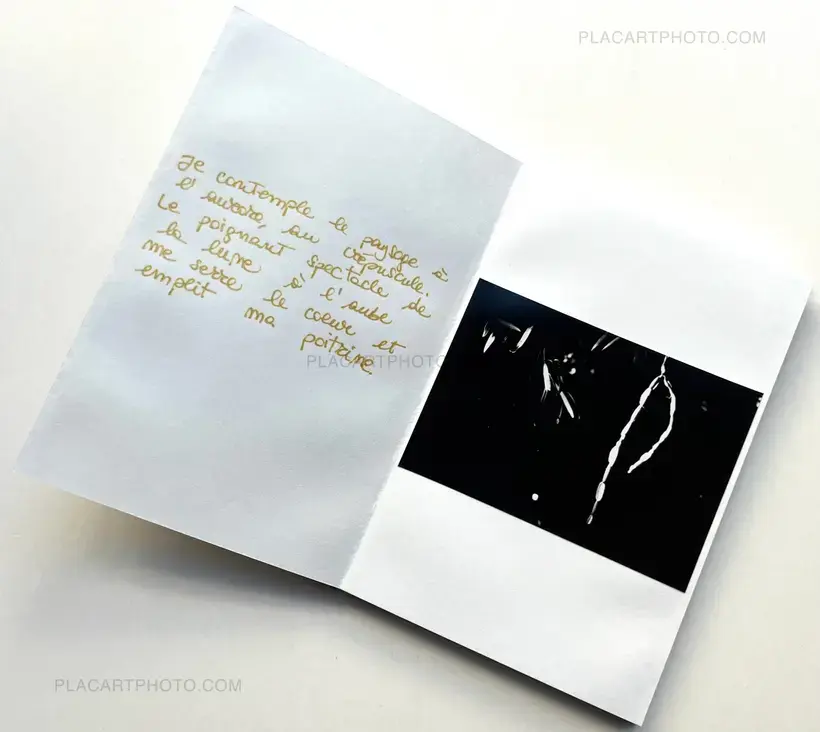 PLACARTPHOTO.COM
Je contemple le paysage à
l'aurore, au crépuscule.
Le poignant spectacle de
la lune à l'aube
me serre le coeur et
emplit ma poitrine
PLACARTPHOTO
PLACARTPHOTO.COM